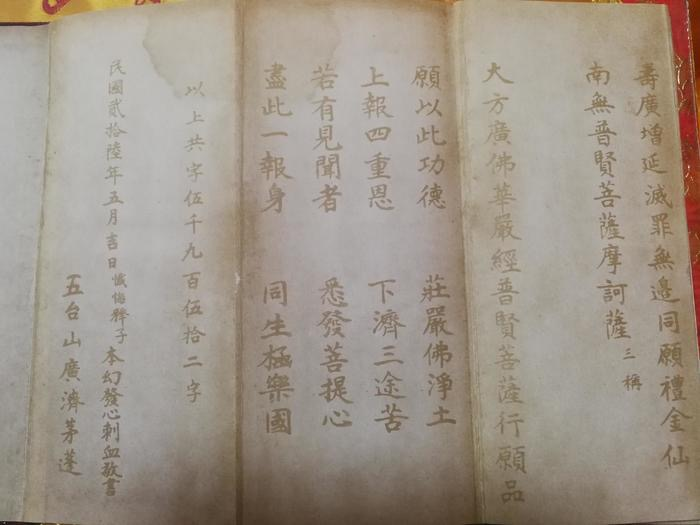 壽廣增延滅罪無邊同願禮金仙
南無普賢菩薩摩訶薩 三稱
大方廣佛華嚴經普賢菩薩行願品
願以此功德 莊嚴佛淨土
上報四重恩 下濟三途苦
若有見聞者 悉發菩提心
盡此一報身 同生極樂國
以上共字伍千九百伍拾二字
民國貳拾陸年五月吉日懺悔釋子本幻發心刺血敬書
五台山廣濟茅蓬